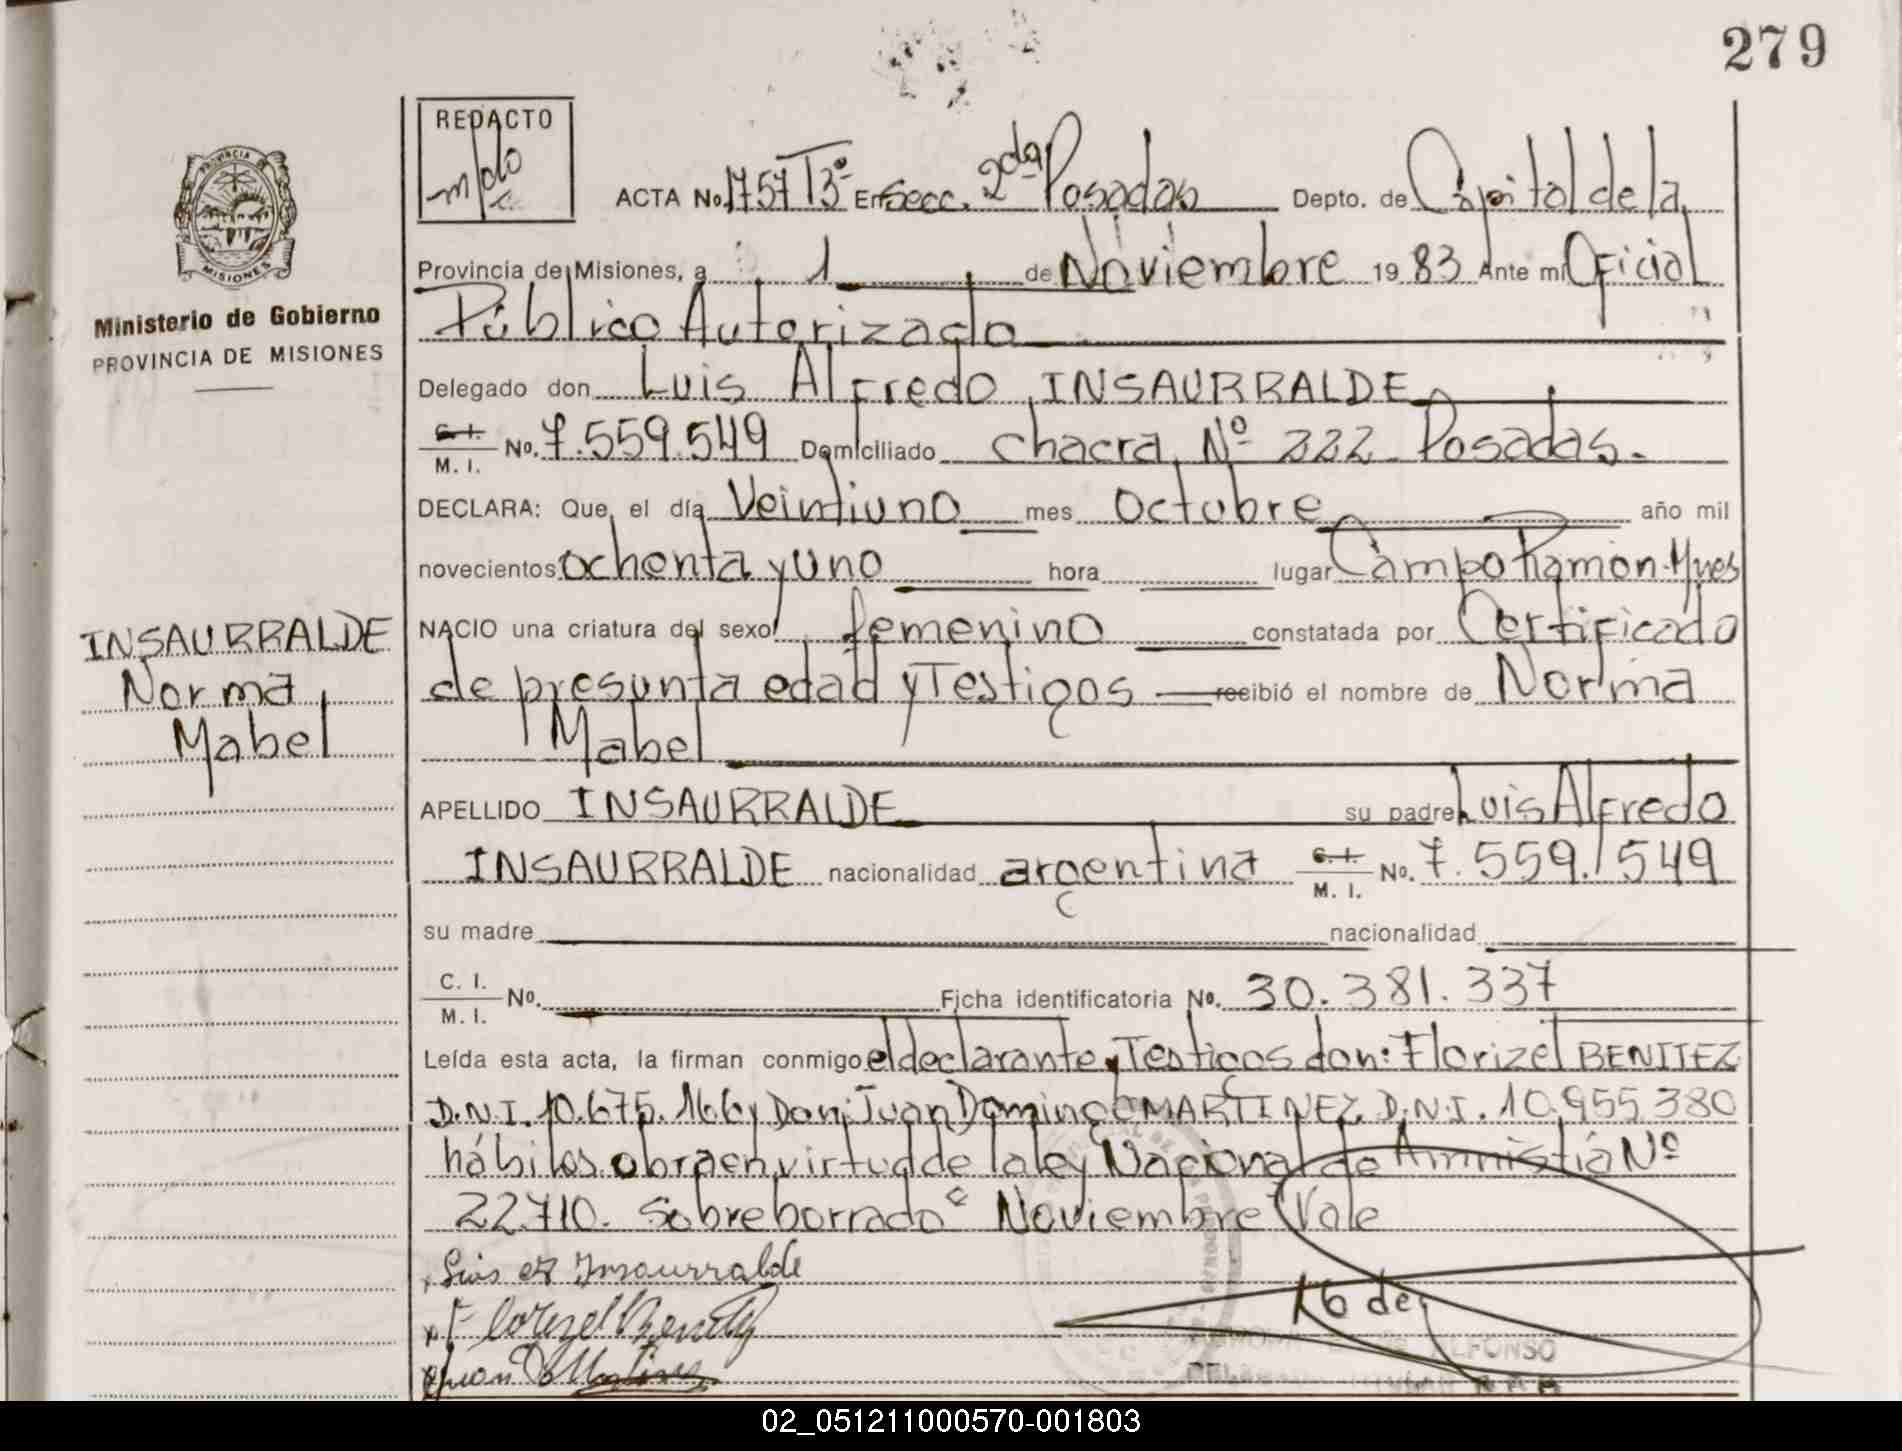 279
REDACTO
PROVINCIA DE MISIONES
Ministerio de Gobierno
PROVINCIA DE MISIONES
ACTA No. 1757 T3º En Secc. 2da Posadas Depto. de Capital de la
Provincia de Misiones, a 1 de Noviembre 19 83 Ante mi Oficial
Público Autorizado
Delegado don Luis Alfredo INSAURRALDE
C. I.
M. I. No. 7.559.549 Domiciliado chacra Nº 222 Posadas.
DECLARA: Que, el día Veintiuno mes octubre año mil
novecientos ochenta y uno hora lugar Campo Ramón Mnes
NACIO una criatura del sexo femenino constatada por Certificado
de presunta edad y Testigos recibió el nombre de Norma
Mabel
INSAURRALDE
Norma
Mabel
APELLIDO INSAURRALDE su padre Luis Alfredo
INSAURRALDE nacionalidad argentina C. I.
M. I. No. 7.559.549
su madre nacionalidad
C. I.
M. I. No. Ficha identificatoria No. 30.381.337
Leída esta acta, la firman conmigo el declarante, Testigos don: Florizel BENITEZ
D.N.I. 10.675.166 y Don: Juan Domingo MARTINEZ D.N.I. 10.955.380
hábiles obra en virtud de la ley Nacional de Amnistía Nº
22.710. Sobreborrado "Noviembre" Vale
Luis Insaurralde
Florizel Benitez
Juan D Martinez
ALFONSO
02_051211000570-001803